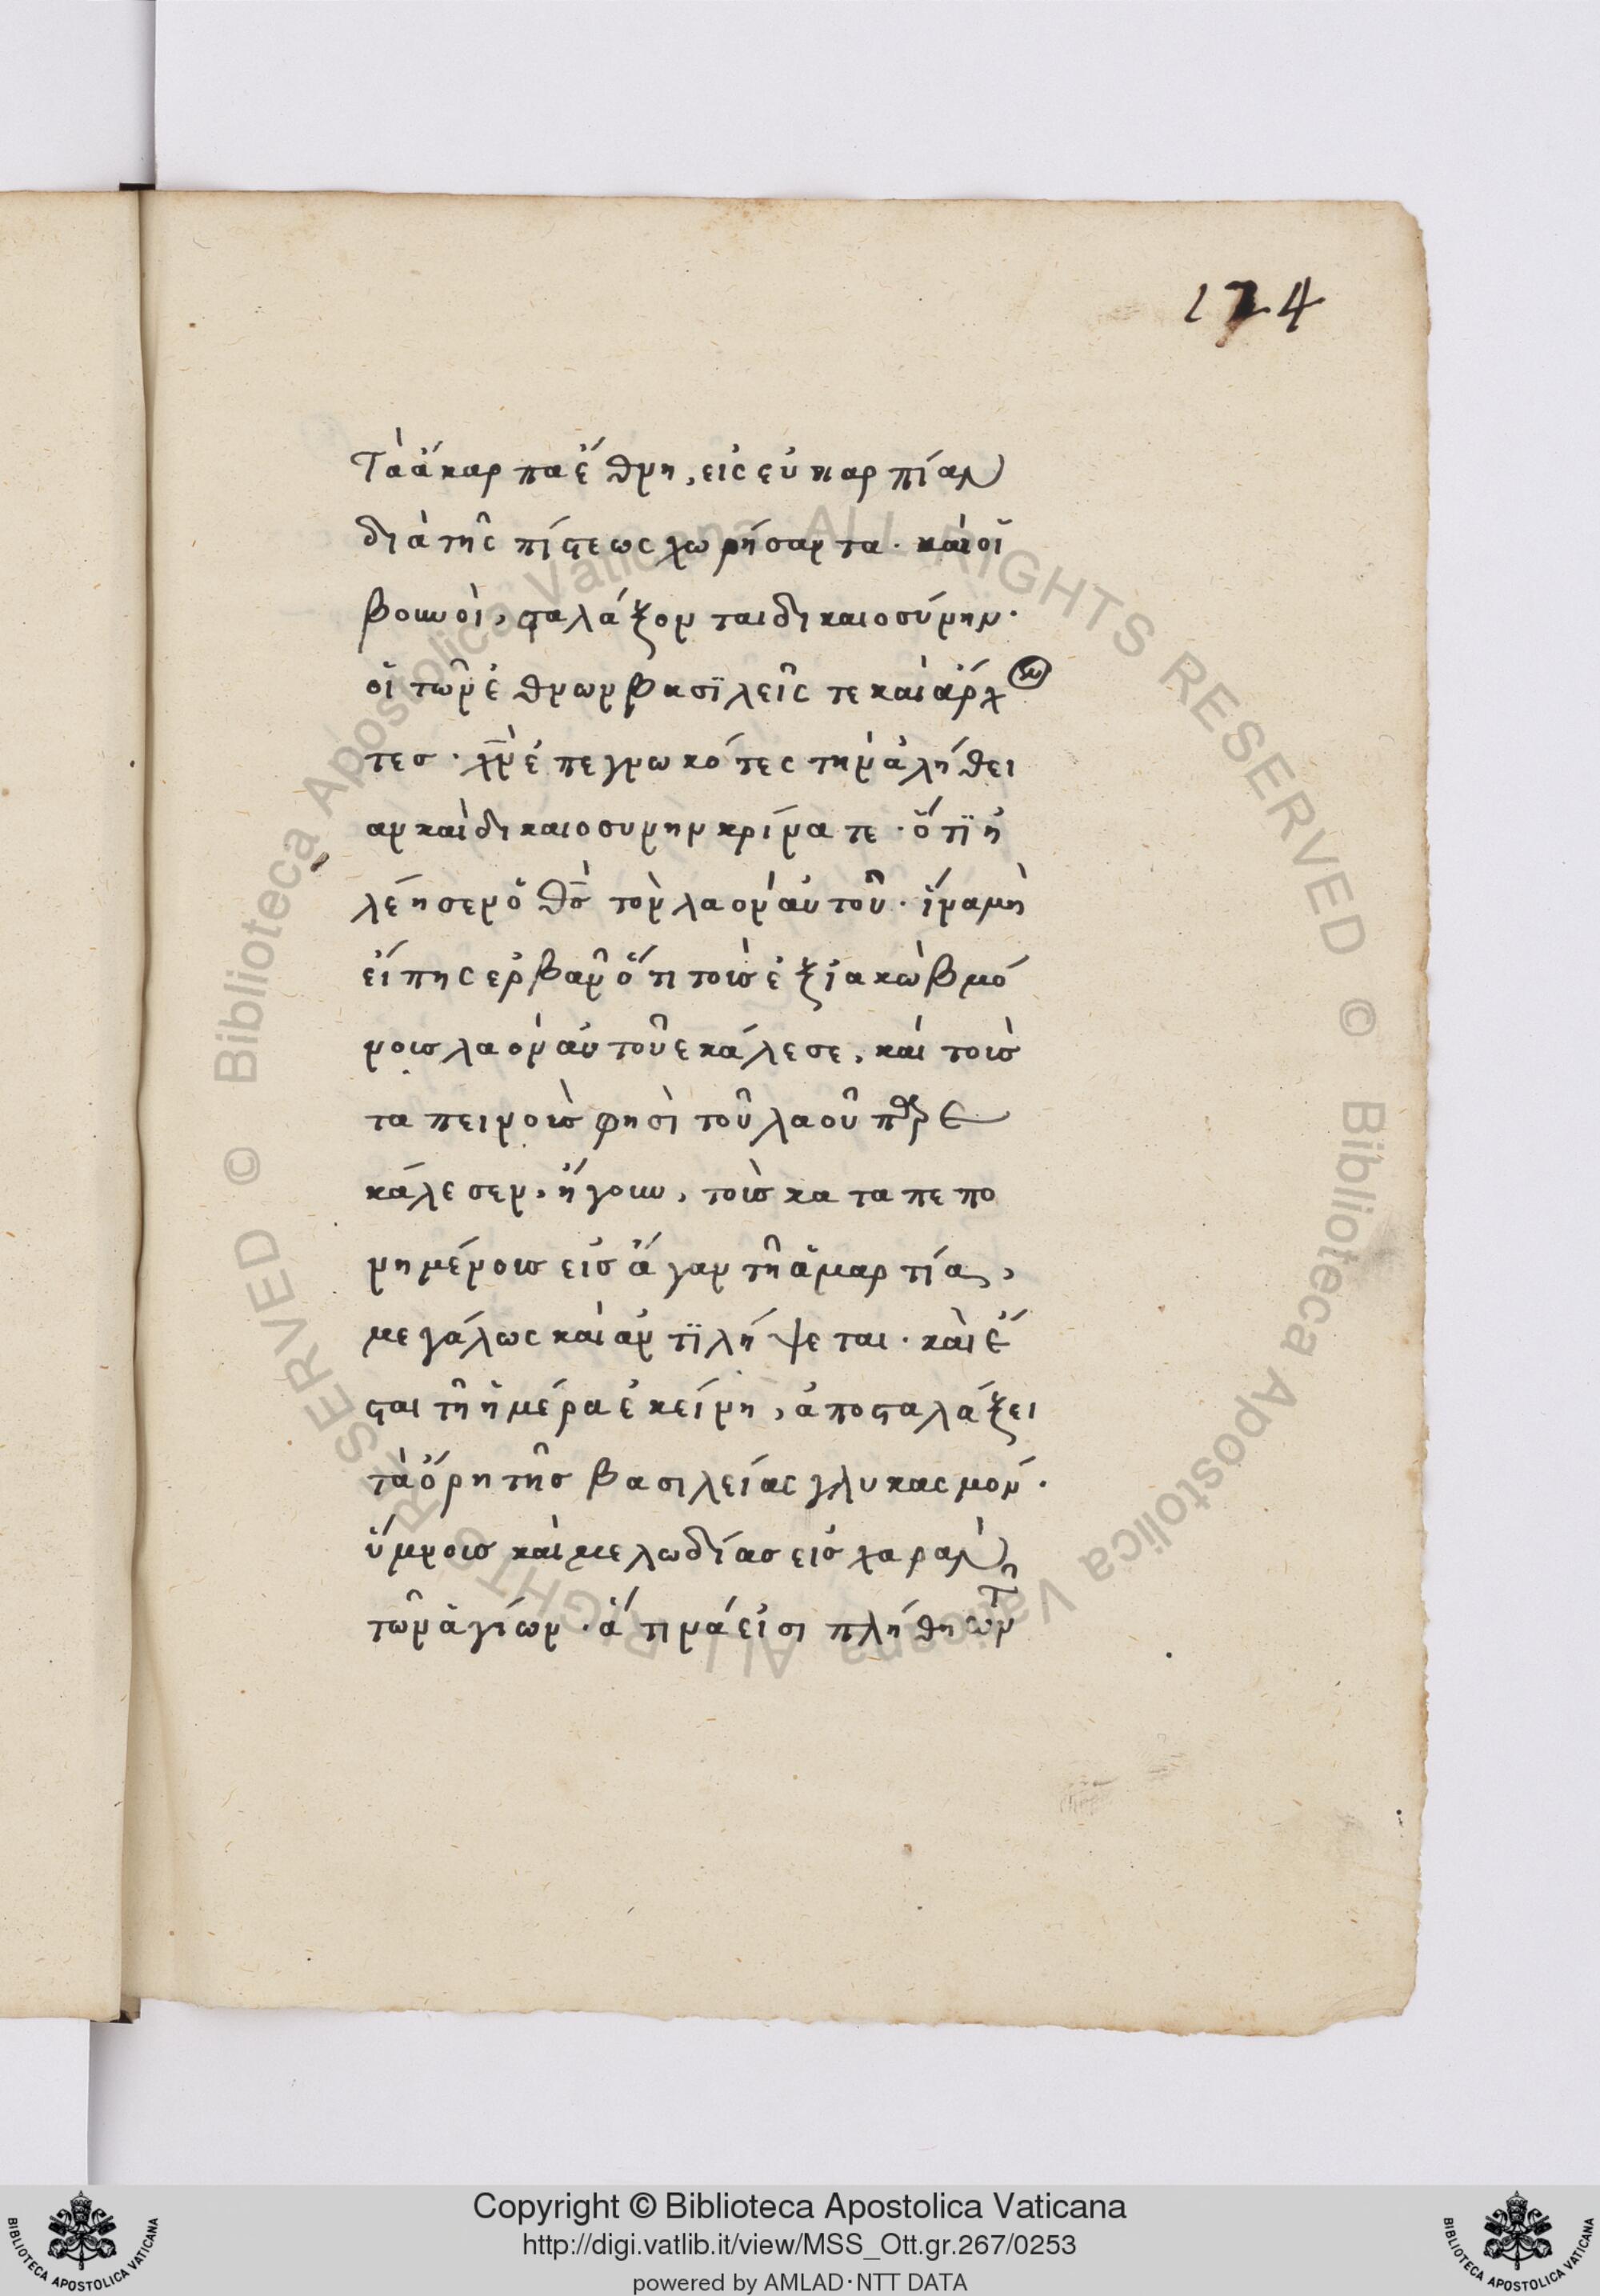 124
Τὰ ἄκαρπα ἔθνη, εἰς εὐκαρπίαν
διὰ τῆς πίστεως χωρήσαντα. καὶ οἱ
βουνοὶ, σταλάξονται δικαιοσύνην.
οἱ τῶν ἐθνων βασϊλεῖς τε καὶ ἄρχον
τεσ. χν ἐπεγνωκότες τὴν ἀλήθει
αν καὶ δικαιοσυνην κρίματε. ὅτϊ ἠ
λέησεν ὁ θσ τὸν λαὸν αὐτοῦ. ἵνα μὴ
εἴπης ἐὰν ὅτι τοὺσ ἐξ ἰακὼβ μό
νουσ λαὸν αὐτοῦ εκάλεσε, καὶ τοὺσ
ταπεινοὺσ φησὶ τοῦ λαοῦ
κάλεσεν, ἤγουν, τοὺσ καταπεπο
νημένουσ εἰσ ἄγαν τῆ ἁμαρτία,
μεγάλως καὶ ἀντϊλήψεται. καὶ ἔ
σται τῆ ἡμέρα ἐκείνη, ἀποσταλάξει
τὰ ὄρη τῆσ βασιλείας γλυκασμόν.
ὕμνουσ καὶ μελωδίασ εἰσ χαρὰν
τῶν ἁγίων. ἅτινά εἰσι πλήθη τῶν
Copyright © Biblioteca Apostolica Vaticana
http://digi.vatlib.it/view/MSS_Ott.gr.267/0253
powered by AMLAD·NTT DATA
BIBLIOTECA APOSTOLICA VATICANA
BIBLIOTECA APOSTOLICA VATICANA
© Biblioteca Apostolica Vaticana ALL RIGHTS RESERVED © Biblioteca Apostolica Vaticana ALL RIGHTS RESERVED